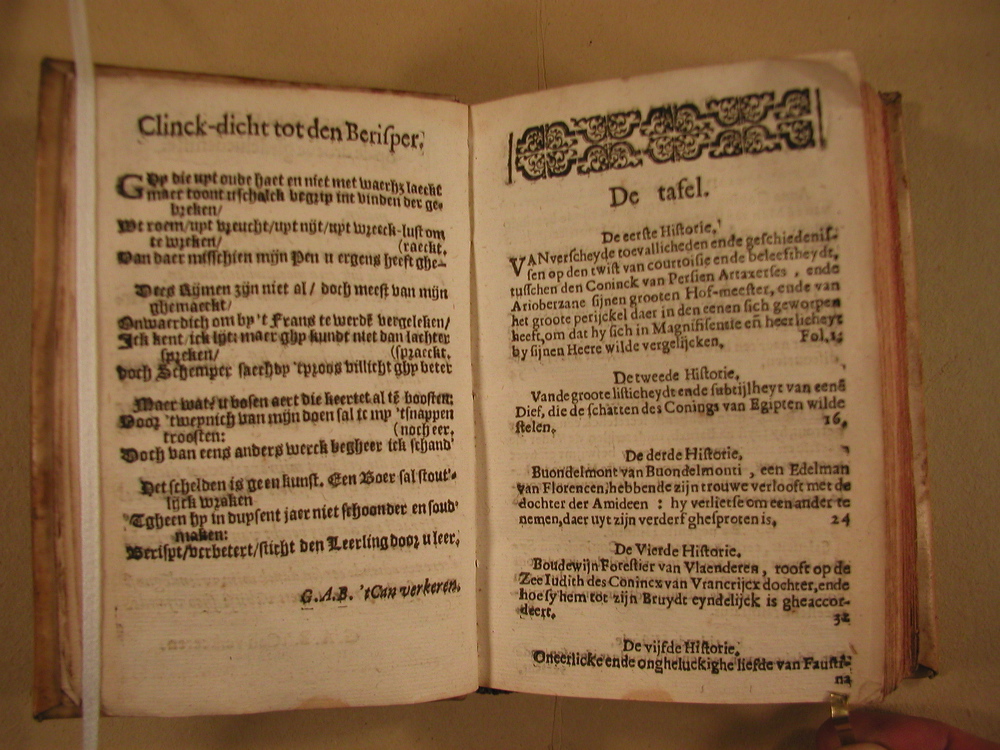 Clinck-dicht tot den Berisper.
GHy die uyt oude haet en niet met waerhz laeckt
maer toont uschalck begrip int vinden der ge-
breken/
Wt roem/uyt vreucht/uyt nijt/uyt wreeck-lust om
te wreken/ (raeckt.
Van daer misschien mijn Pen u ergens heeft ghe-
Dees Rijmen zijn niet al / doch meest van mijn
ghemaeckt/
Onwaerdich om by 't Frans te werdē vergeleken/
Ick kent/ick lijt: maer ghy kundt niet dan lachter
spreken/ (spraeckt.
doch Schemper saechdy 'tproos villicht ghy beter
Maer wat/ u bosen aert die keertet al tē boosten:
Door 'tweynich van mijn doen sal it my 'tsnappen
troosten: (noch eer.
Doch van eens anders werck begheer ick schand'
Het schelden is geen kunst. Een Boer sal stout'-
lijck wraken
'Tgheen hy in duysent jaer niet schoonder en soud'
maken:
Berispt/verbetert/sticht den Leerling door u leer.
G.A.B. 't Can verkeren.
De tafel.
De eerste Historie.
VAN verscheyde toevallicheden ende geschiedenis-
sen op den twist van courtoisie ende beleeftheydt,
tusschen den Coninck van Persien Artaxerses , ende
Ariobarzane sijnen grooten Hof-meester, ende van
het groote perijckel daer in den eenen sich geworpen
heeft,om dat hy sich in Magnifisentie eñ heerlicheyt
by sijnen Heere wilde vergelijcken. Fol.1;
De tweede Historie.
Vande groote listicheydt ende subtijlheyt van eenē
Dief, die de schatten des Conings van Egipten wilde
stelen. 16.
De derde Historie.
Buondelmont van Buondelmonti , een Edelman
van Florencen,hebbende zijn trouwe verlooft met de
dochter der Amideen : hy verlietse om een ander te
nemen,daer uyt zijn verderf ghesproten is. 24
De Vierde Historie.
Boudewijn Forestier van Vlaenderen , rooft op de
Zee Iudith des Conincx van Vrancrijcx dochter,ende
hoe sy hem tot zijn Bruydt eyndelijck is gheaccor-
deert. 32
De vijfde Historie.
Oneerlicke ende ongheluckighe liefde van Fausti-
na